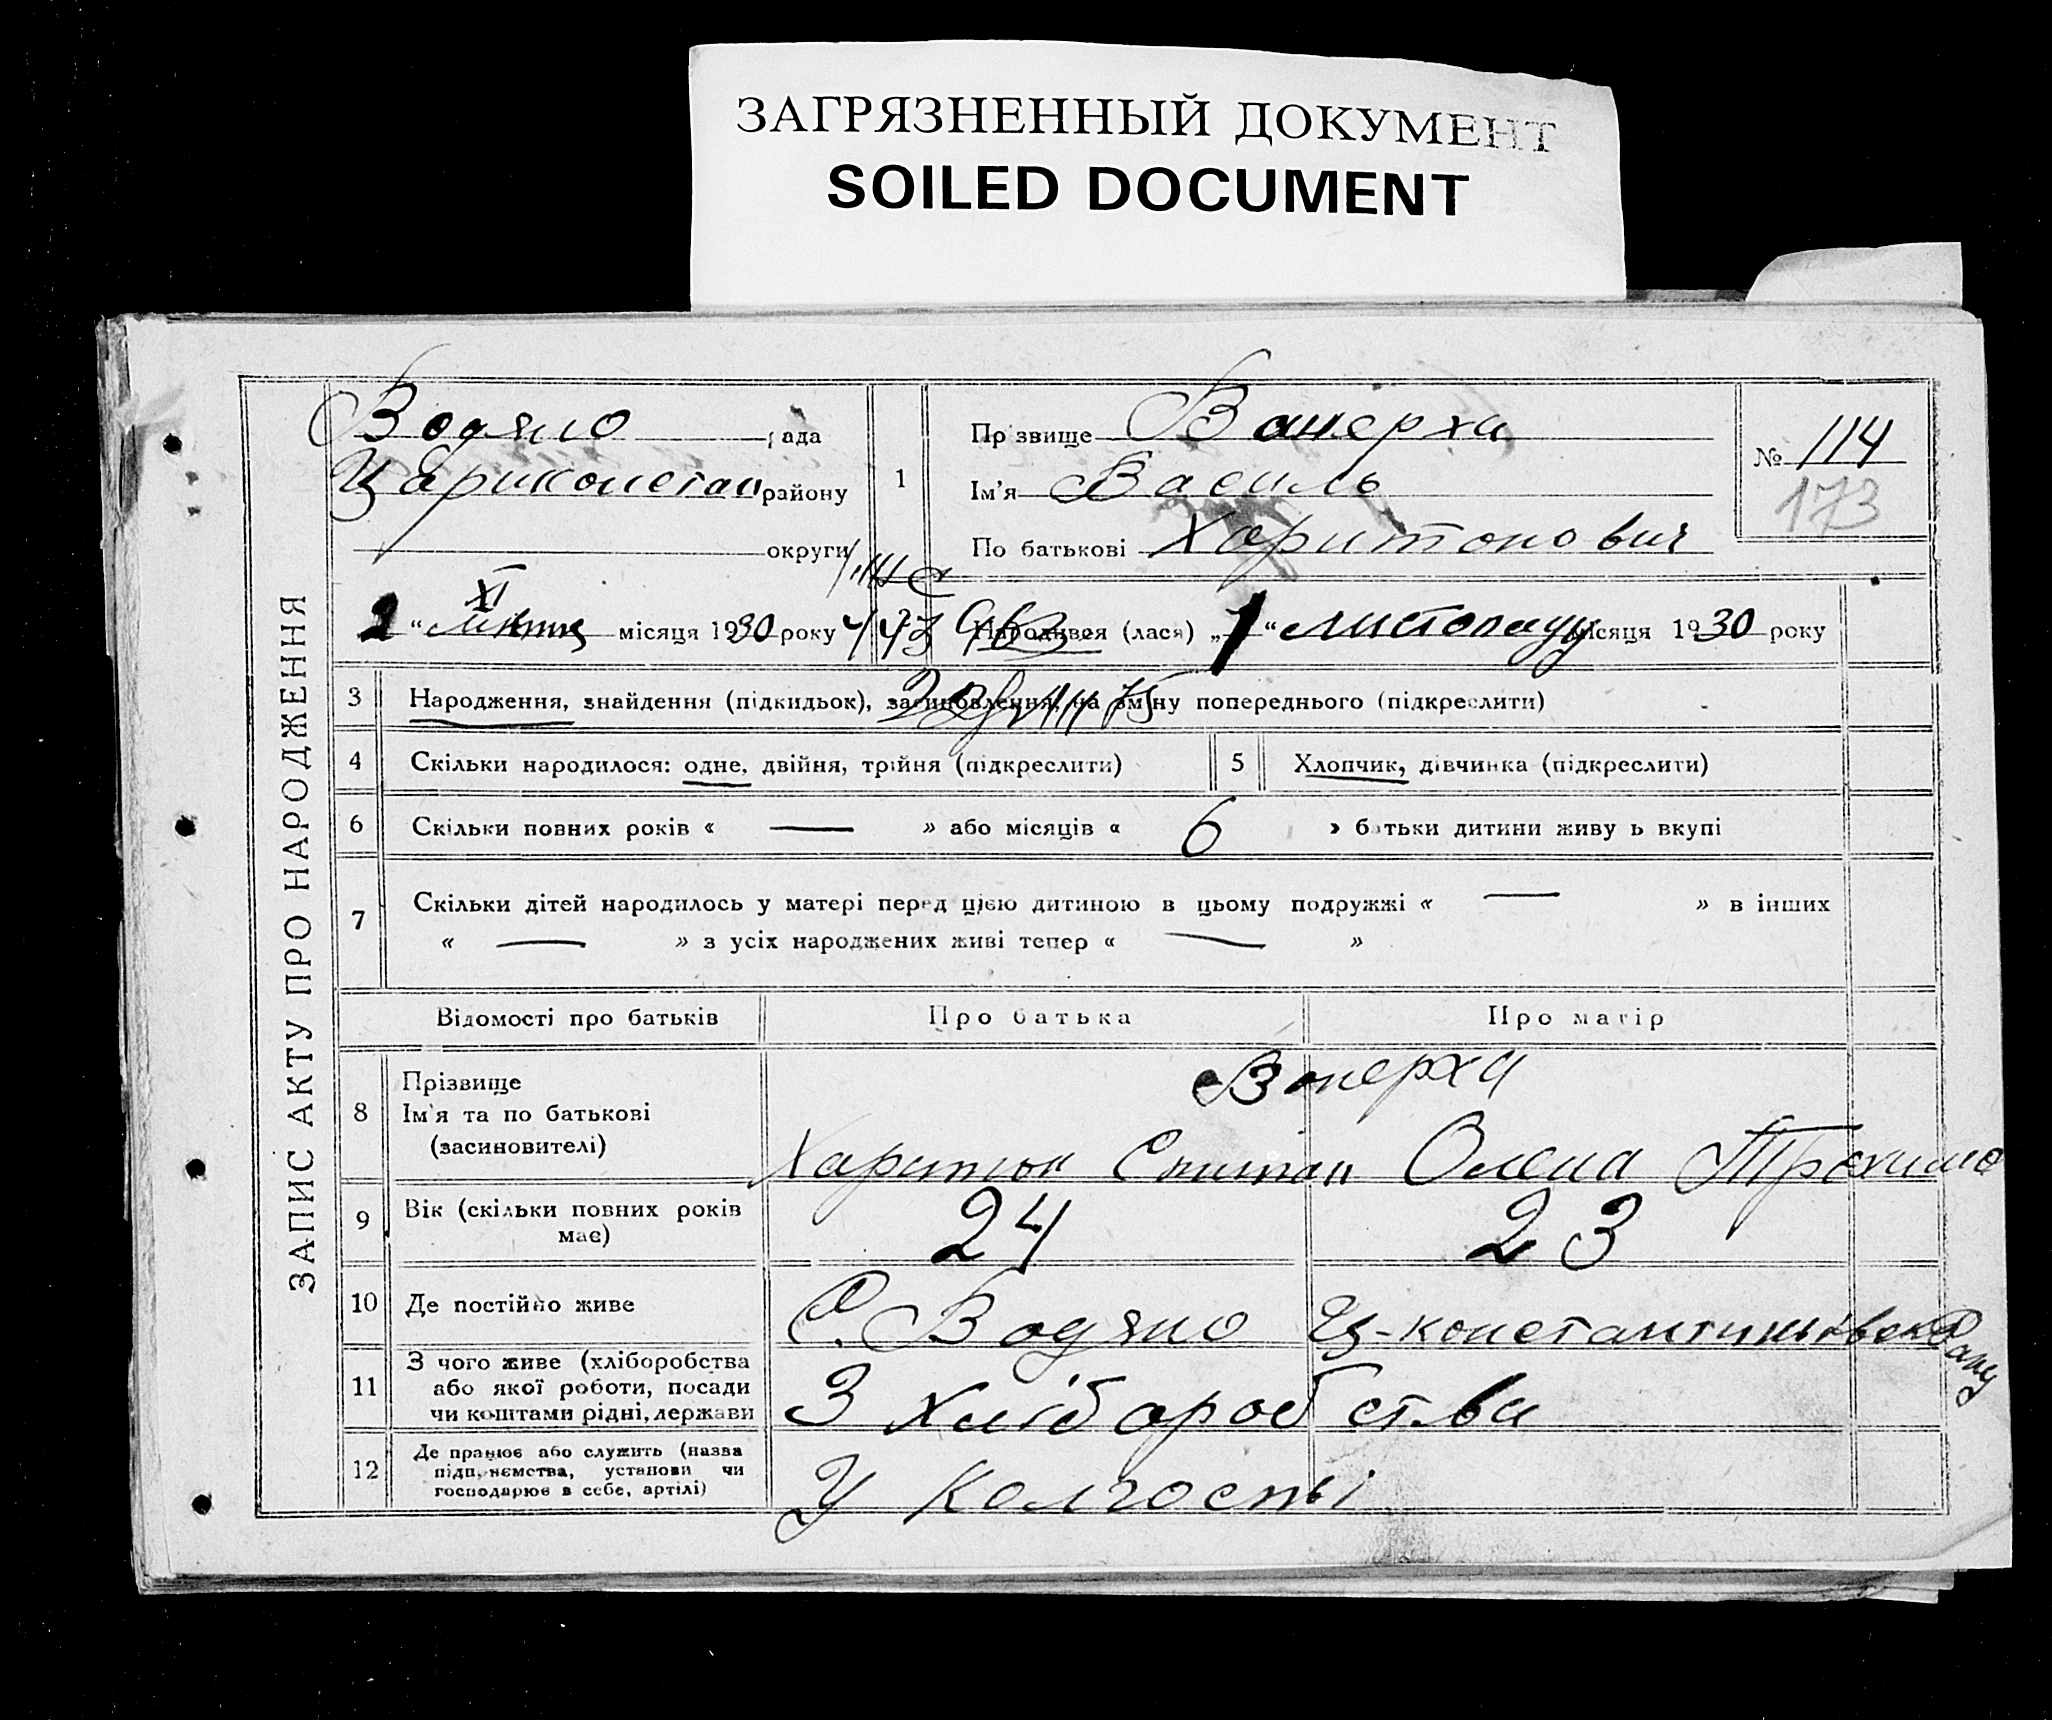 ЗАГРЯЗНЕННЫЙ ДОКУМЕНТ
SOILED DOCUMENT
ЗАПИС АКТУ ПРО НАРОДЖЕННЯ
Водяно рада
Цариконстан району
округи
1
Прізвище Ванерха
Ім'я Василь
По батькові Харитонович
№ 114
173
2 " XI місяця 1930 року
Народився (лася) „ 1 " листопаду місяця 1930 року
3 Народження, знайдення (підкидьок), засиновлення, на зміну попереднього (підкреслити)
4 Скільки народилося: одне, двійня, трійня (підкреслити) 5 Хлопчик, дівчинка (підкреслити)
6 Скільки повних років « — » або місяців « 6 » батьки дитини живуть вкупі
7 Скільки дітей народилось у матері перед цією дитиною в цьому подружжі « — » в інших
« — » з усіх народжених живі тепер « — »
Відомості про батьків Про батька Про матір
8 Прізвище
Ім'я та по батькові
(засиновителі)
Ванерха
Харитон Олена Трохимо
9 Вік (скільки повних років
має)
24 23
10 Де постійно живе С. Водяно Ц-константинівска
11 З чого живе (хліборобства
або якої роботи, посади
чи коштами рідні, держави
З хліборобства
12 Де працює або служить (назва
підприємства, установи чи
господарює в себе, артілі)
У Колгоспі